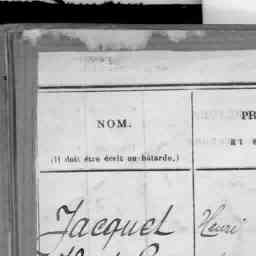 NOM.
PR
ET
(Il doit être écrit en bâtarde.)
Jacquel Henri